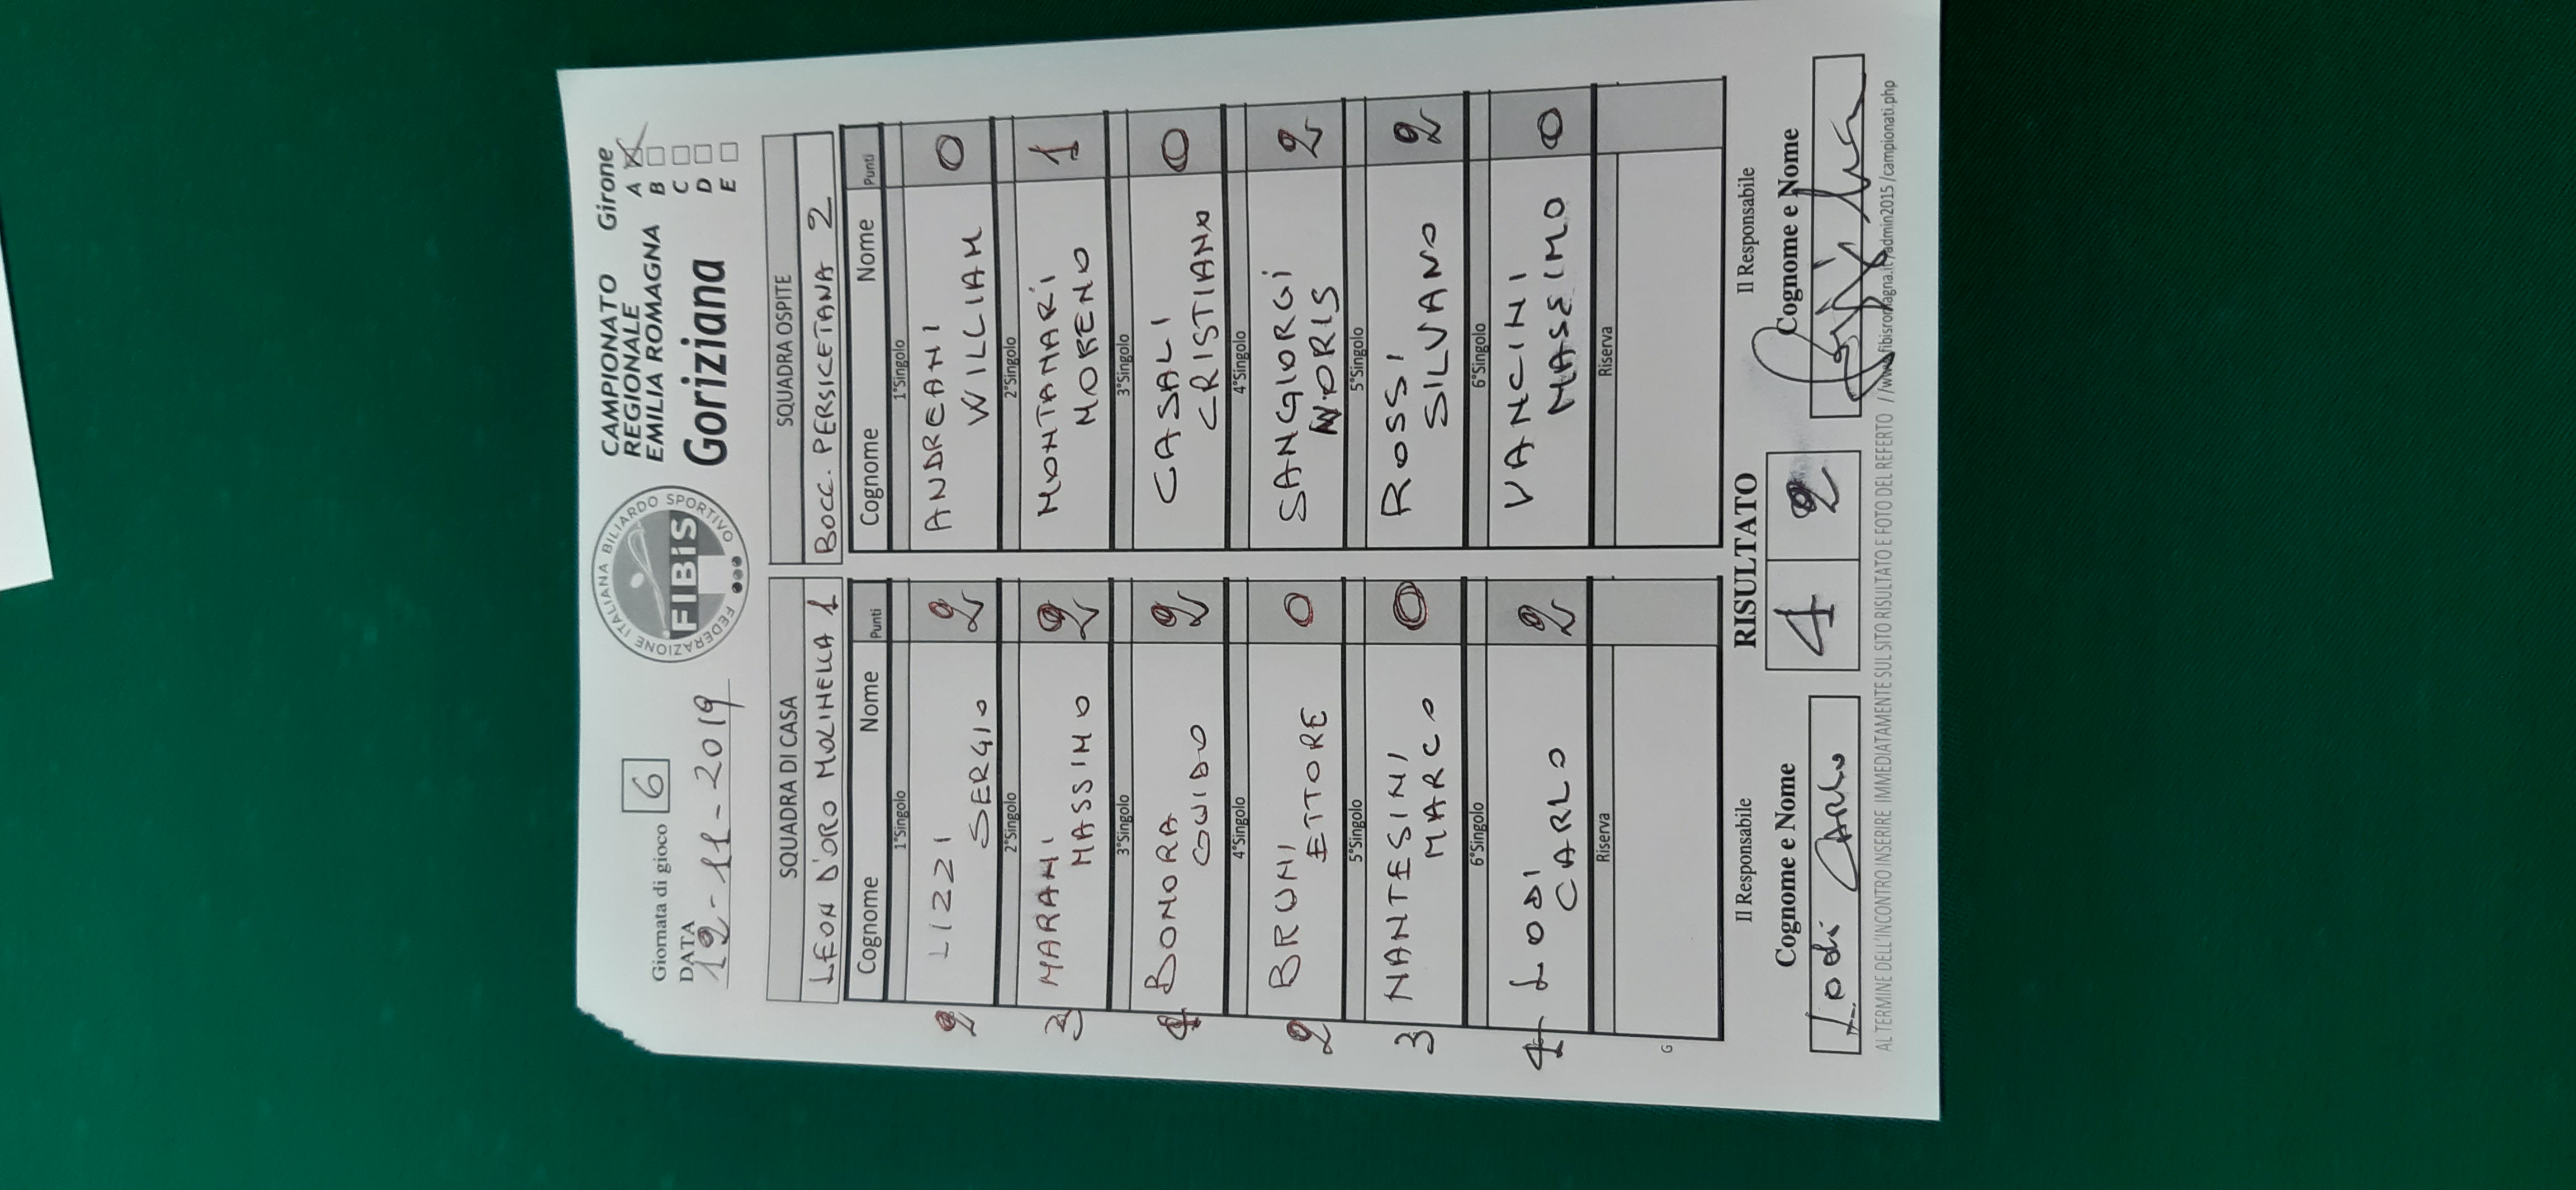 Giornata di gioco 6
DATA
12-11-2019
FEDERAZIONE ITALIANA BILIARDO SPORTIVO
FIBiS
CAMPIONATO Girone
REGIONALE
EMILIA ROMAGNA
Goriziana
A
B
C
D
E
SQUADRA DI CASA
LEON D'ORO MOLINELLA 1
SQUADRA OSPITE
BOCC. PERSICETANA 2
Cognome Nome Punti
Cognome Nome Punti
1°Singolo 1°Singolo
2 LIZZI SERGIO 2
ANDREANI WILLIAM 0
2°Singolo 2°Singolo
3 MARANI MASSIMO 2
MONTANARI MORENO 1
3°Singolo 3°Singolo
4 BONORA GUIDO 2
CASALI CRISTIANO 0
4°Singolo 4°Singolo
2 BRUNI ETTORE 0
SANGIORGI NORIS 2
5°Singolo 5°Singolo
3 NANTESINI MARCO 0
ROSSI SILVANO 2
6°Singolo 6°Singolo
4 LODI CARLO 2
VANCINI MASSIMO 0
Riserva Riserva
G
Il Responsabile RISULTATO Il Responsabile
Cognome e Nome Cognome e Nome
Lodi Carlo 4 2
AL TERMINE DELL'INCONTRO INSERIRE IMMEDIATAMENTE SUL SITO RISULTATO E FOTO DEL REFERTO //www.fibisromagna.it/admin2015/campionati.php